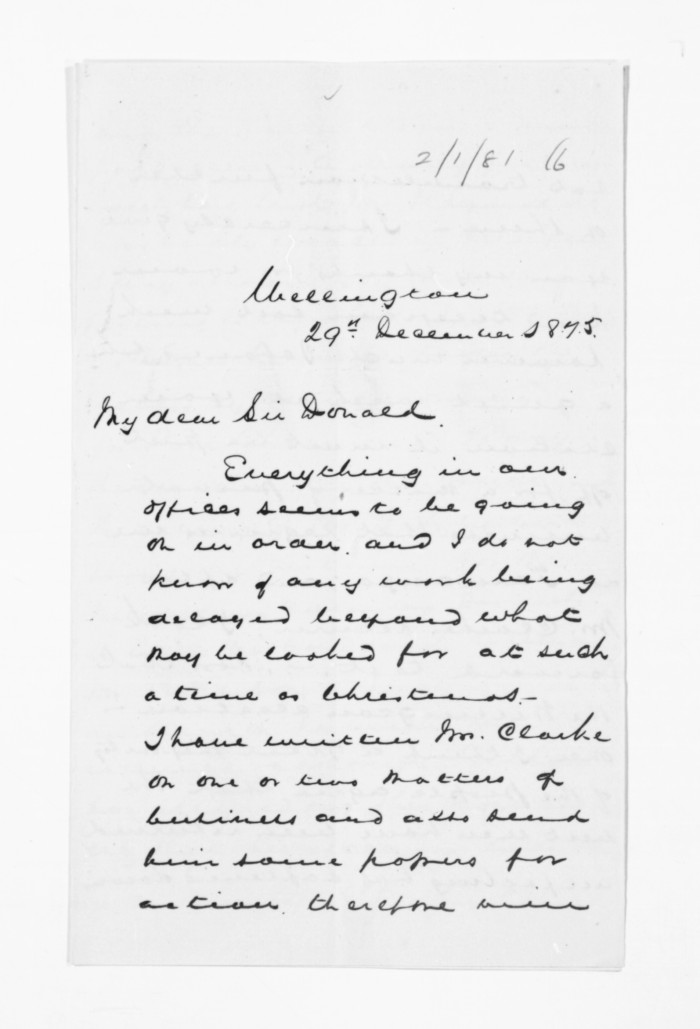 2/1/81 (6
Wellington
29th December 1875.
My dear Sir Donald.
Everything in our
offices seems to be going
on in order and I do not
know of any work being
delayed beyond what
may be looked for at such
a time as Christmas.-
I have written Mr. Clarke
on one or two matters of
business and also send
him some papers for
action. therefore will